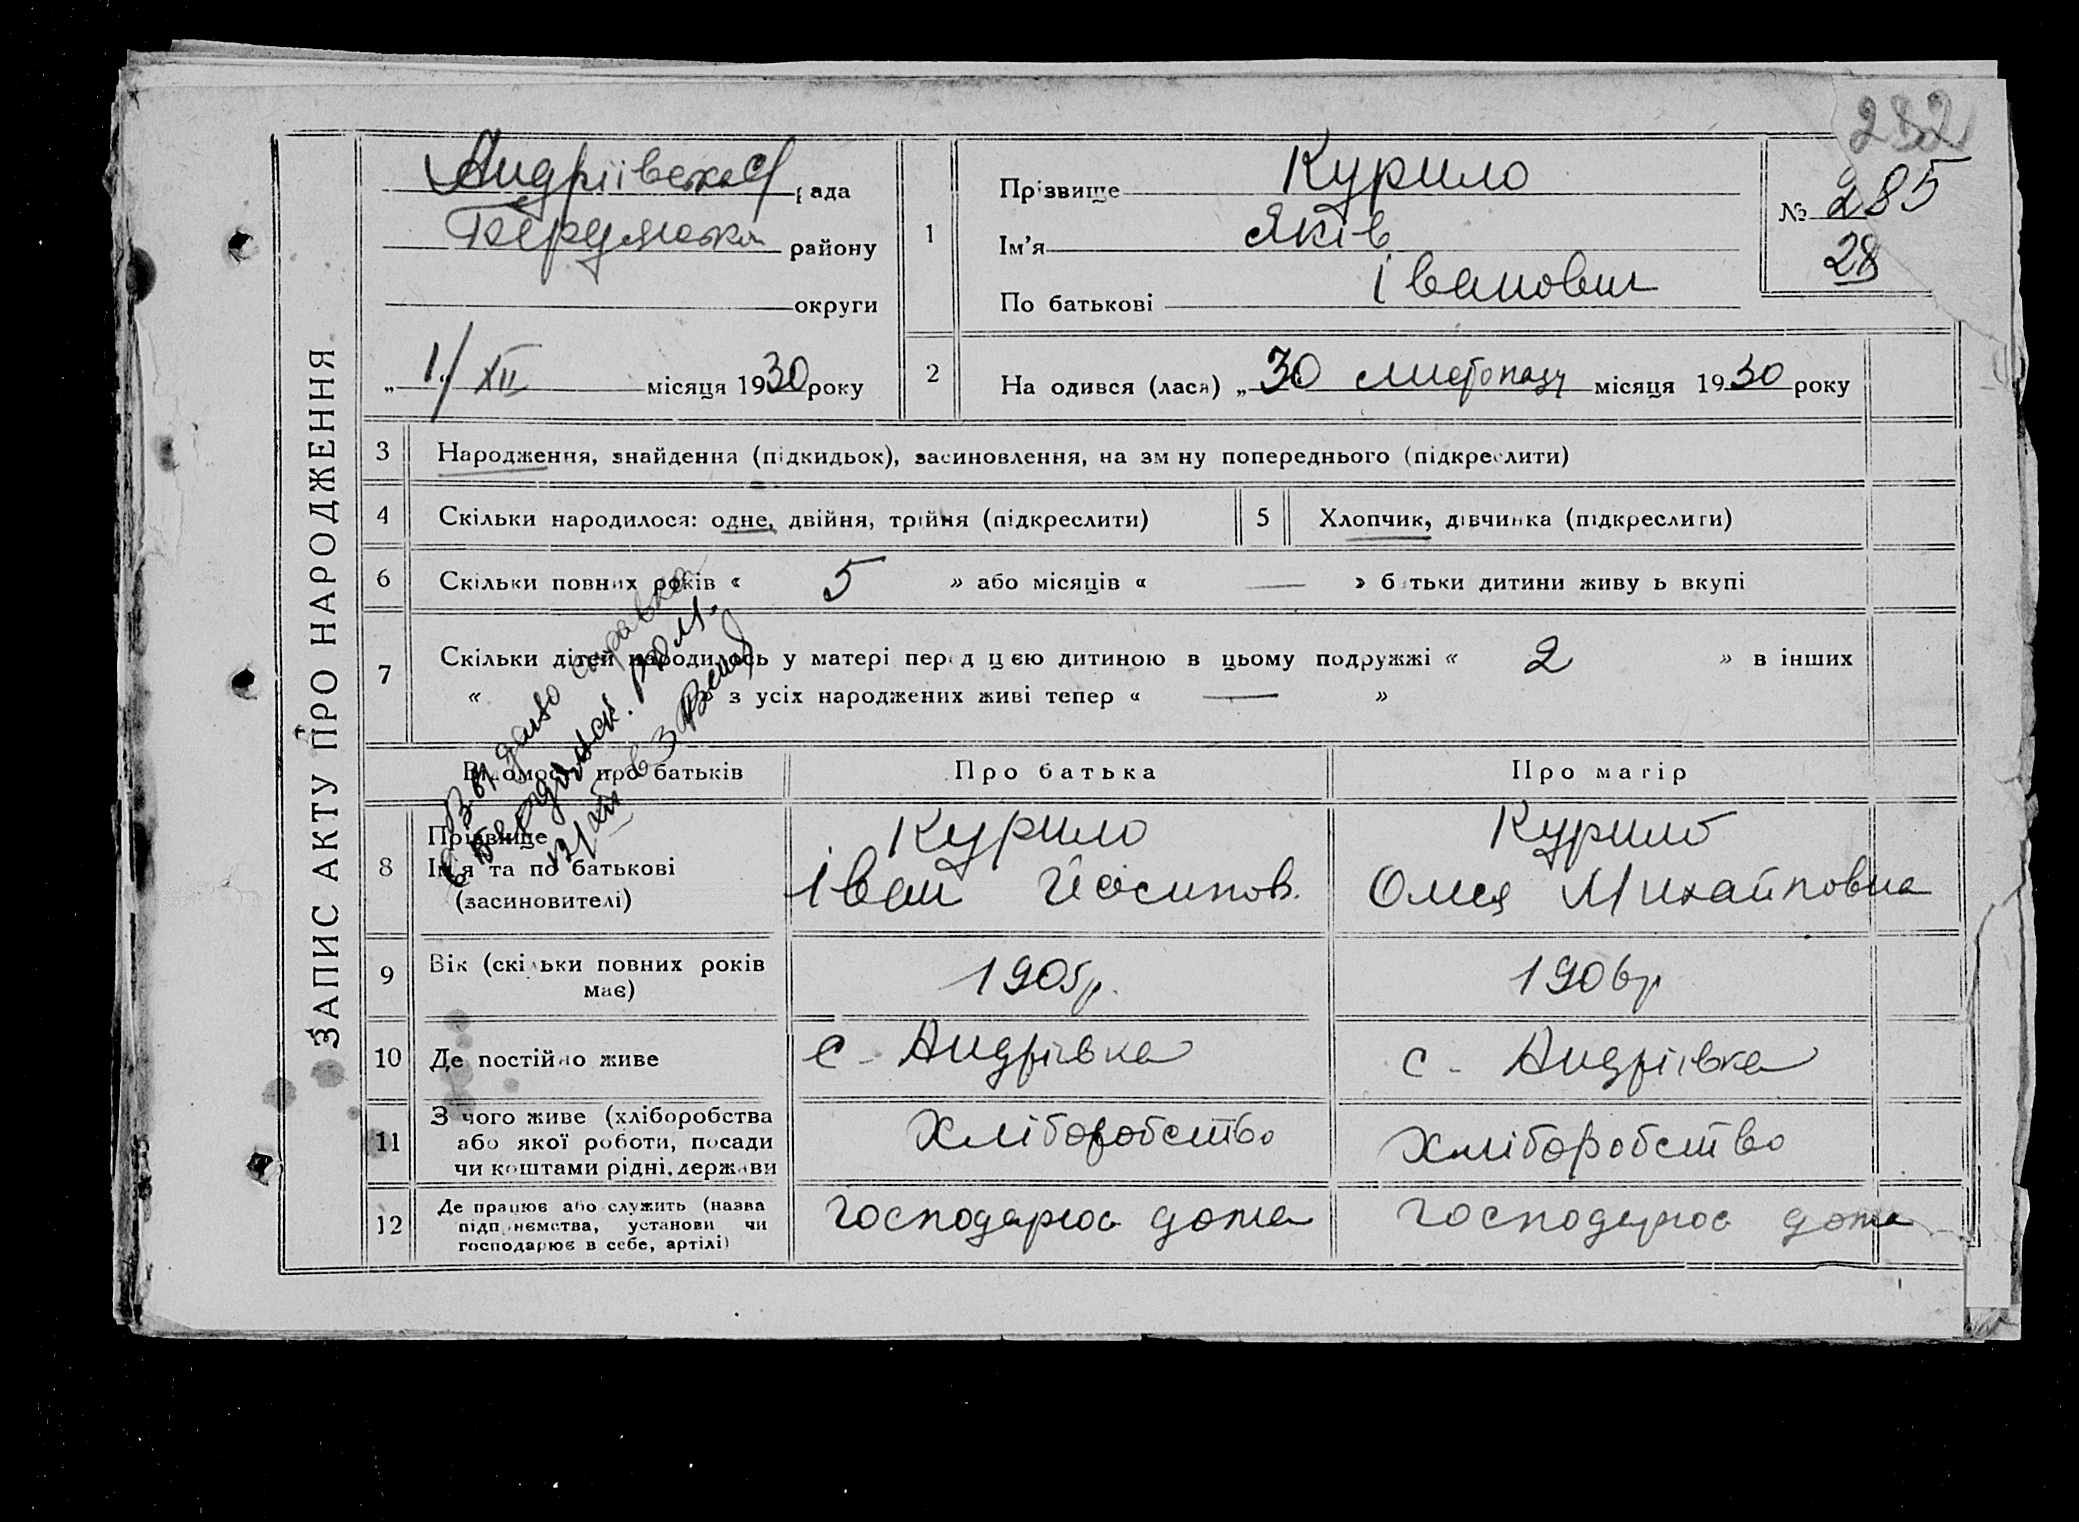 282
ЗАПИС АКТУ ПРО НАРОДЖЕННЯ
Андріївська рада
району
округи
1/XII місяця 1930 року
1
Прізвище Курило
Ім'я Яків
По батькові Іванович
№ 285
28
2 На одився (лася) „30 листопаду місяця 1930 року
3 Народження, знайдення (підкидьок), засиновлення, на зм ну попереднього (підкреслити)
4 Скільки народилося: одне, двійня, трійня (підкреслити) 5 Хлопчик, дівчинка (підкреслити)
6 Скільки повних років « 5 » або місяців « — » б тьки дитини живу ь вкупі
7 Скільки дітей народилось у матері перед цією дитиною в цьому подружжі « 2 » в інших
« » з усіх народжених живі тепер « — »
Выдано справка
в Бердянск.
Відомості про батьків Про батька Про матір
8 Прізвище Курило Курило
Ім'я та по батькові Іван Йосипов. Михайловна
(засиновителі)
9 Вік (скільки повних років має) 1905р. 1906р
10 Де постійно живе с. Андрівка с. Андріївка
11 З чого живе (хліборобства Хліборобство Хліборобство
або якої роботи, посади
чи коштами рідні, держави
12 Де працює або служить (назва господарює дома господарює дома
підприємства, установи чи
господарює в себе, артілі)